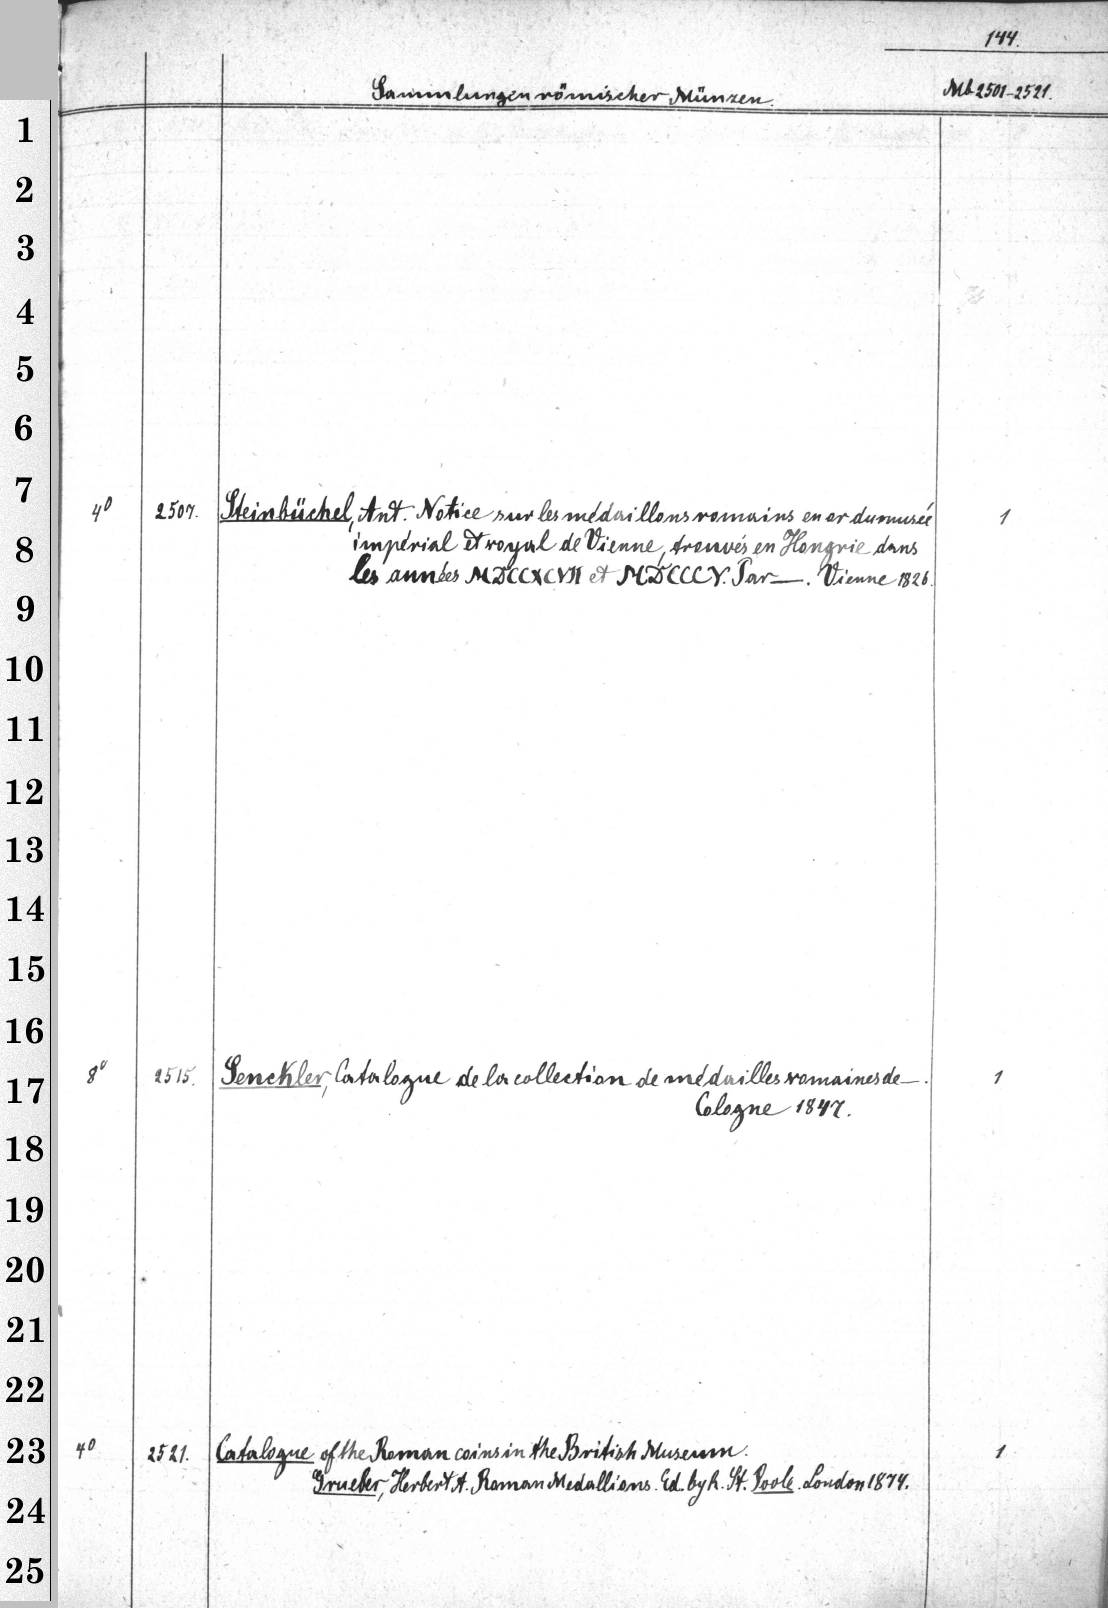 144.
Sammlungen römischer Münzen. Mb 2501-2521.
1
2
3
4
5
6
7
4° 2507. Steinbüchel, Ant. Notice sur les médaillons romains en or du musée 1
8
impérial et royal de Vienne, trouvés en Hongrie dans
les années MDCCXCVII et MDCCCV. Par —. Vienne 1826.
9
10
11
12
13
14
15
16
17
8° 2515. Senckler, Catalogue de la collection de médailles romaines de —. 1
Cologne 1847.
18
19
20
21
22
23
4° 2521. Catalogue of the Roman coins in the British Museum. 1
Grueber, Herbert A. Roman Medallions. Ed. by R. St. Poole. London 1874.
24
25